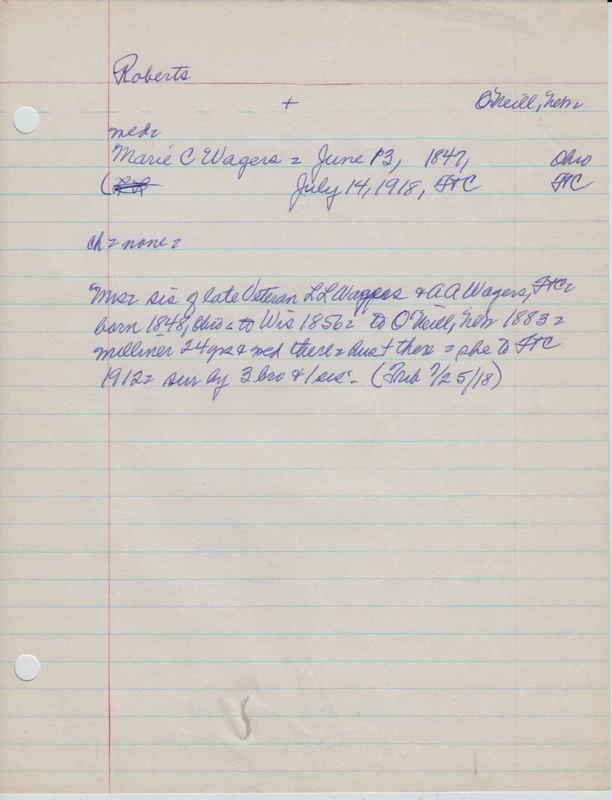 Roberts
+ O'Neill, Neb=
med=
Marie C Wagers = June 13, 1847, Ohio
( July 14, 1918, FTC FTC
ch = none =
Mrs= sis of late Veteran L L Wagers & A A Wagers, FTC=
born 1848, Ohio = to Wis 1856 = to O'Neill, Neb 1883 =
milliner 24 yrs & med there = hus + there = she to FTC
1912 = sur by 3 bro & 1 sis. (Trib 7/25/18)